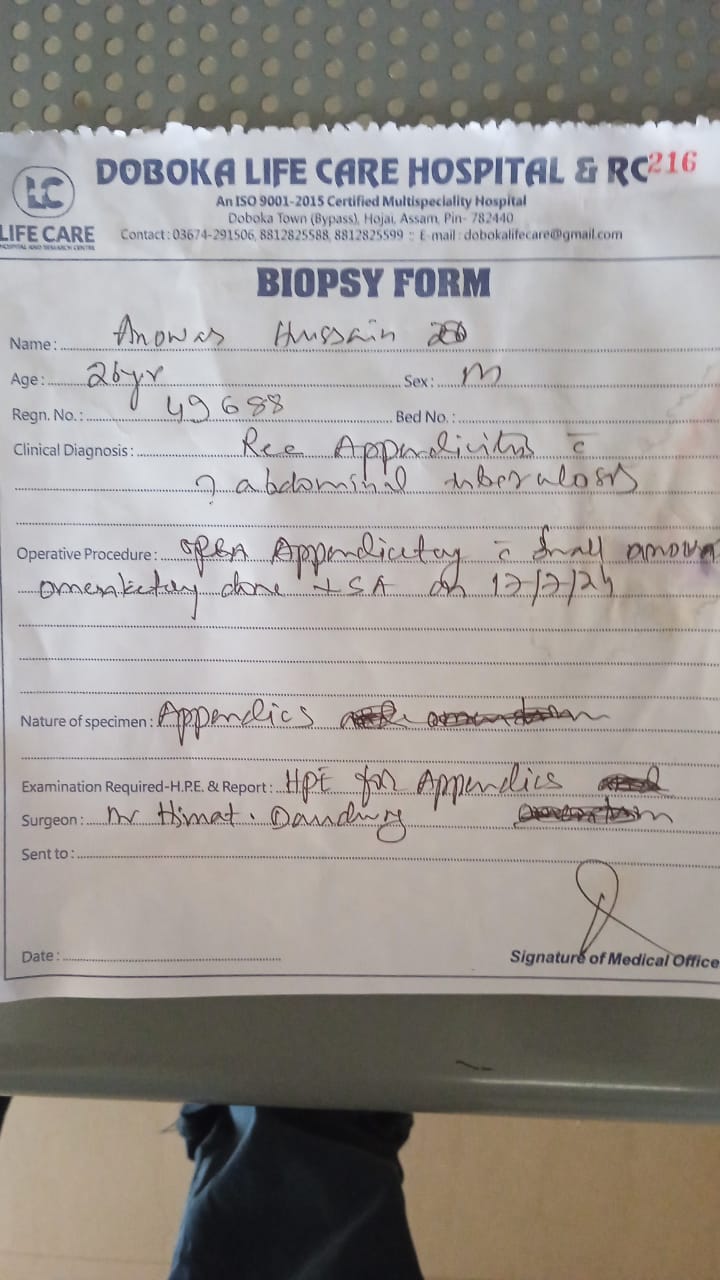 DOBOKA LIFE CARE HOSPITAL & RC 216
LC
LIFE CARE
HOSPITAL AND RESEARCH CENTRE
An ISO 9001-2015 Certified Multispeciality Hospital
Doboka Town (Bypass), Hojai, Assam, Pin- 782440
Contact : 03674-291506, 8812825588, 8812825599 :: E-mail : dobokalifecare@gmail.com
BIOPSY FORM
Name : Anowar Hussain
Age : 26yr Sex : M
Regn. No. : 49688 Bed No. :
Clinical Diagnosis : Rec Appendicitis c̄
? abdominal tuberculosis
Operative Procedure : open Appendicetoy c̄ small amount
omenketoy done on 17/7/24
Nature of specimen : Appendics
Examination Required-H.P.E. & Report : HPE for Appendics
Surgeon : Dr Himat
Sent to :
Date :
Signature of Medical Office